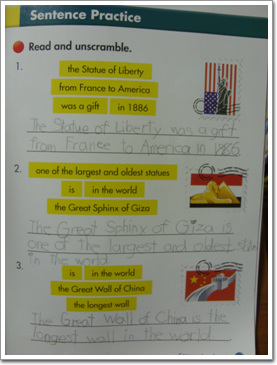 Sentence Practice
Read and unscramble.
1.
the Statue of Liberty
from France to America
was a gift in 1886
The Statue of Liberty was a gift
from France to America in 1886.
2.
one of the largest and oldest statues
is in the world
the Great Sphinx of Giza
The Great Sphinx of Giza is
one of the largest and oldest
in the world
3.
is in the world
the Great Wall of China
the longest wall
The Great Wall of China is the
longest wall in the world